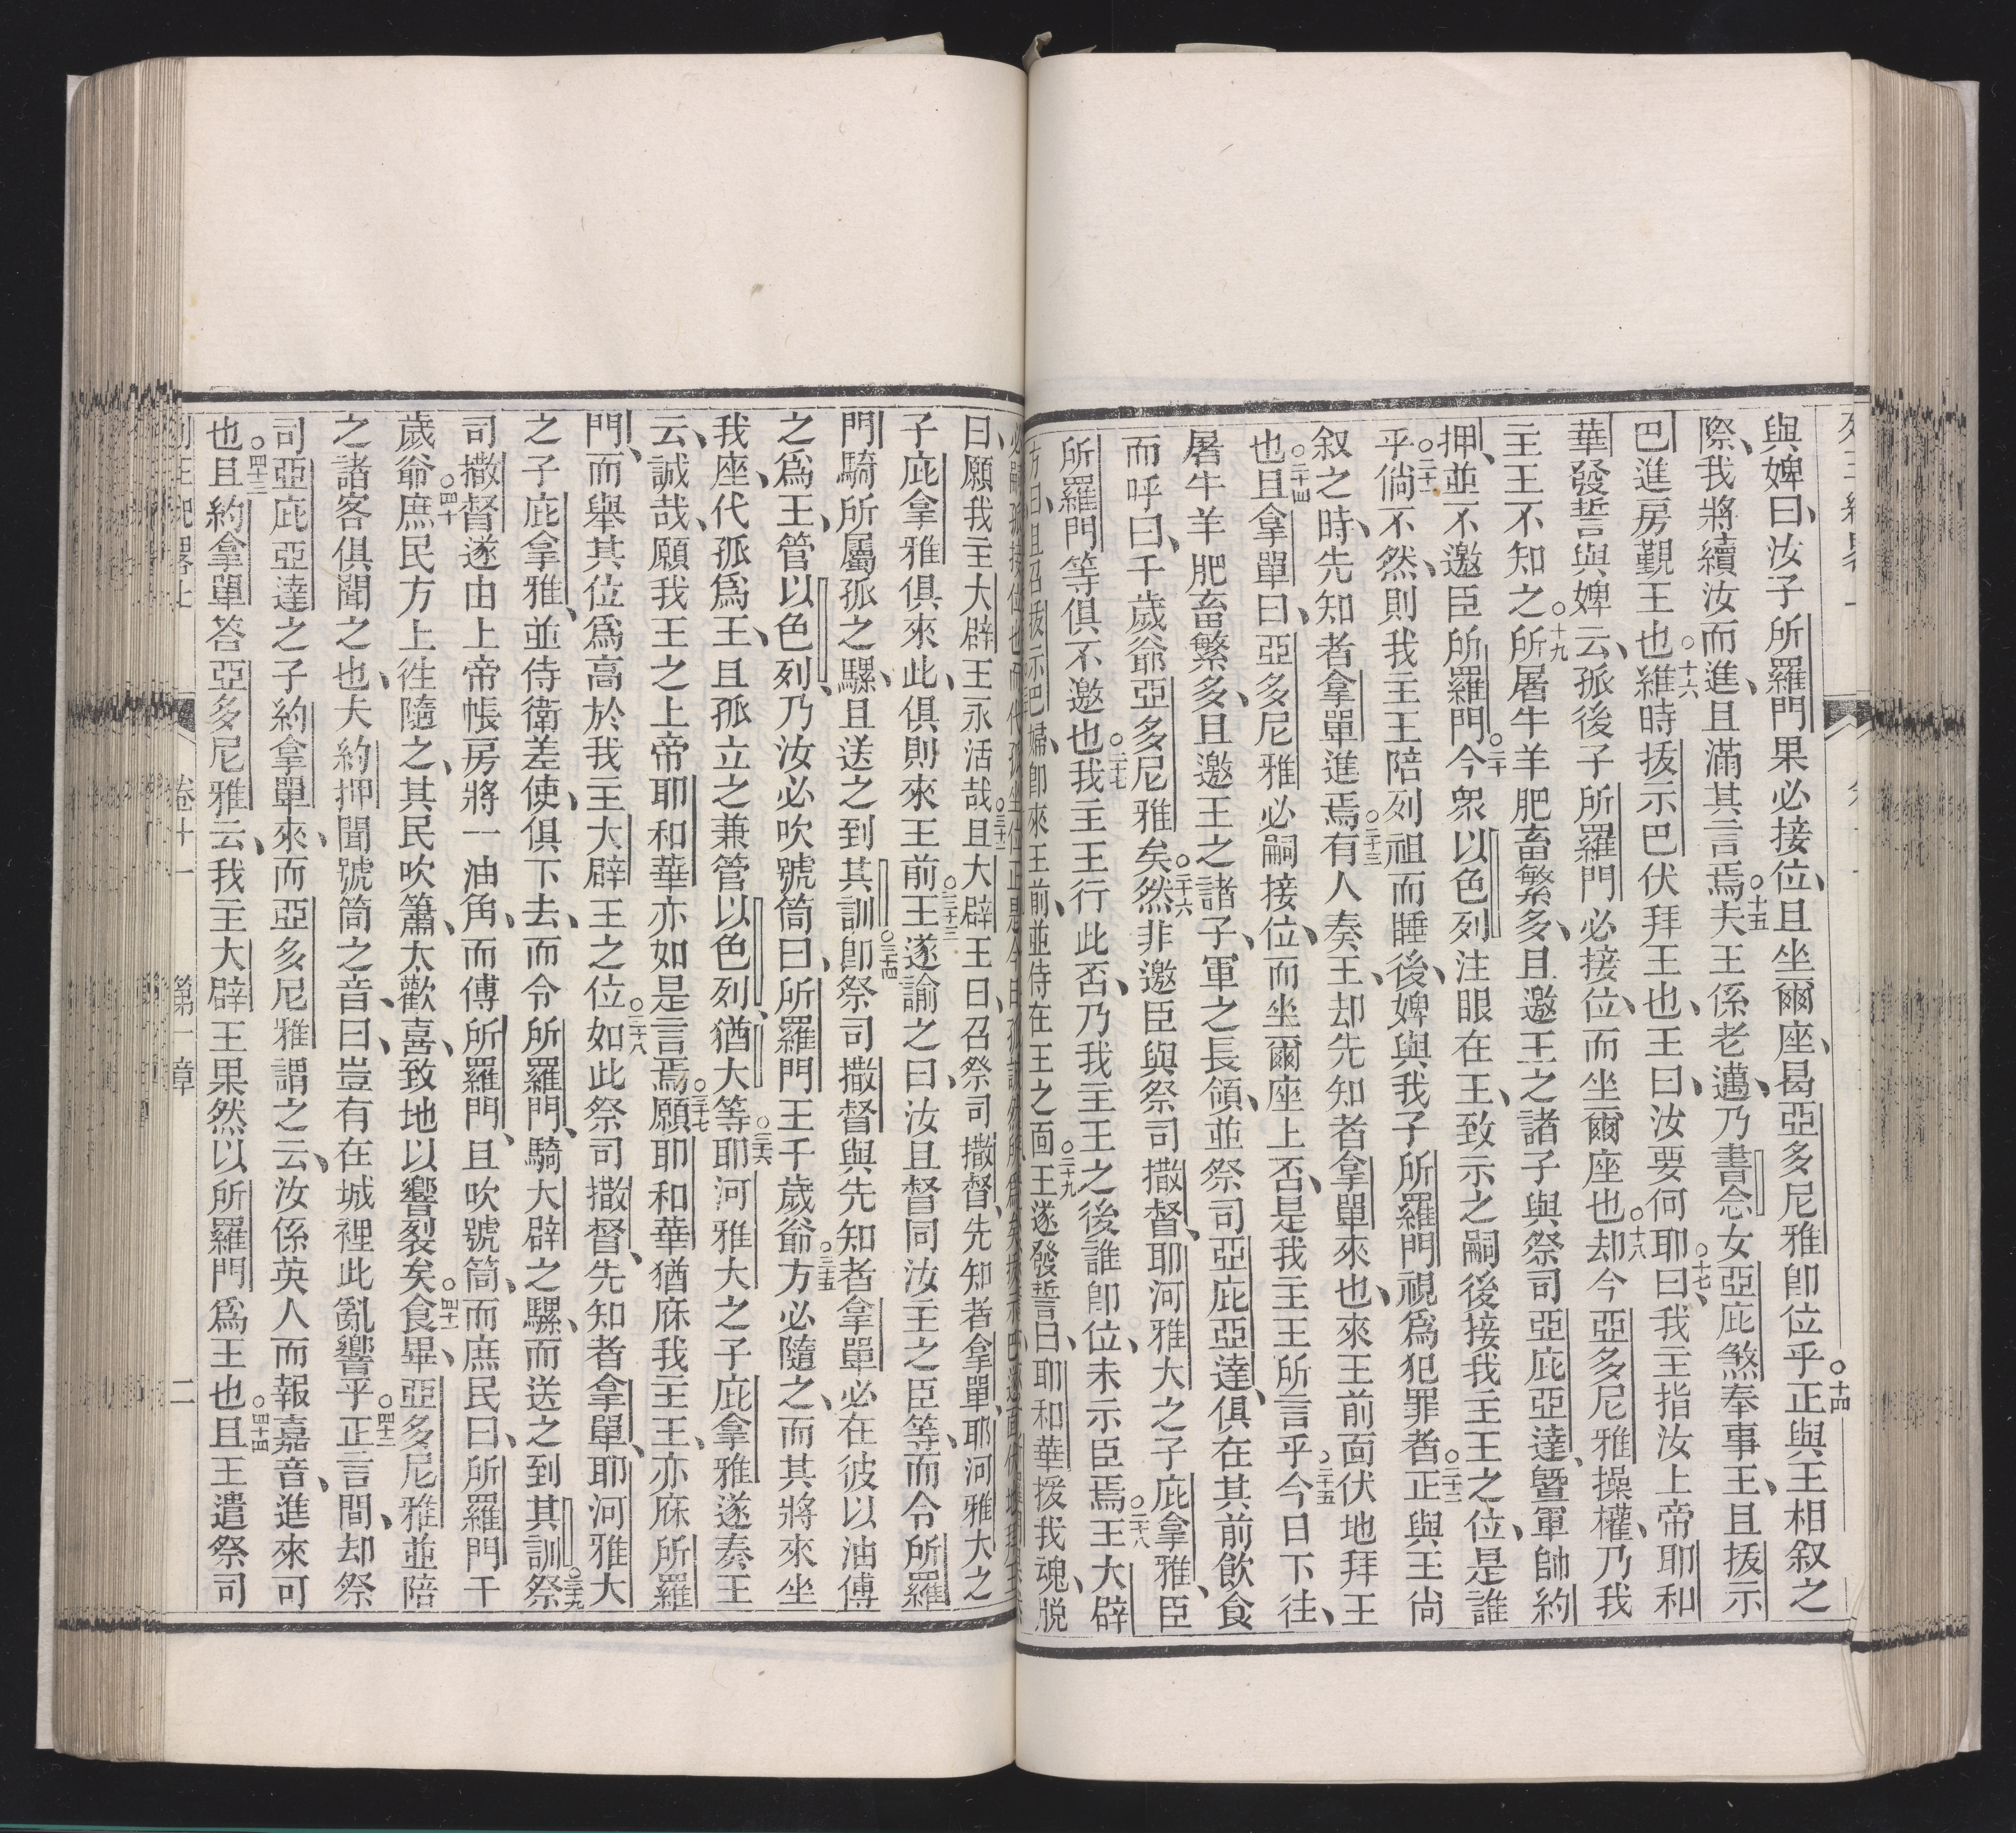 與婢曰、汝子所羅門果必接位、且坐爾座、曷亞多尼雅卽位乎○十四正與王相叙之
際、我將續汝而進、且滿其言焉○十五夫王係老邁、乃書念女亞庇煞奉事王、且拔示
巴進房覲王也○十六維時拔示巴伏拜王也、王曰、汝要何耶○十七曰、我主指汝上帝耶和
華發誓與婢云、孤後子所羅門必接位、而坐爾座也○十八却今亞多尼雅操權、乃我
主王不知之○十九所屠牛羊肥畜繁多、且邀王之諸子與祭司亞庇亞達、曁軍帥約
押、並不邀臣所羅門○二十今衆以色列注眼在王、致示之嗣後接我主王之位、是誰
乎○二十一倘不然、則我主王陪列祖而睡後、婢與我子所羅門視爲犯罪者○二十二正與王尙
叙之時、先知者拿單進焉○二十三有人奏王、却先知者拿單來也、來王前面伏地拜王
也○二十四且拿單曰、亞多尼雅必嗣接位、而坐爾座上否、是我主王所言乎○二十五今日下往、
屠牛羊肥畜繁多、且邀王之諸子、軍之長領、並祭司亞庇亞達、俱在其前飮食
而呼曰、千歲爺亞多尼雅矣○二十六然非邀臣與祭司撒督、耶河雅大之子庇拿雅、臣
所羅門等俱不邀也○二十七我主王行此否、乃我主王之後誰卽位、未示臣焉○二十八王大辟
方曰、且召拔示巴婦、卽來王前、並侍在王之面○二十九王遂發誓曰、耶和華援我魂、脫
曰、願我主大辟王永活哉○三十二且大辟王曰、召祭司撒督、先知者拿單、耶河雅大之
子庇拿雅俱來此、俱則來王前○三十三王遂諭之曰、汝且督同汝主之臣等、而令所羅
門騎所屬孤之騾、且送之到其訓○三十四卽祭司撒督與先知者拿單必在彼以油傅
之爲王、管以色列、乃汝必吹號筒曰、所羅門王千歲爺○三十五方必隨之、而其將來坐
我座、代孤爲王、且孤立之兼管以色列、猶大等○三十六耶河雅大之子庇拿雅遂奏王
云、誠哉、願我王之上帝耶和華亦如是言焉○三十七願耶和華猶庥我主王、亦庥所羅
門、而舉其位爲高於我主大辟王之位○三十八如此祭司撒督、先知者拿單、耶河雅大
之子庇拿雅、並侍衛差使、俱下去、而令所羅門騎大辟之騾、而送之到其訓○三十九祭
司撒督遂由上帝帳房將一油角、而傅所羅門、且吹號筒、而庶民曰、所羅門千
歲爺○四十庶民方上徃隨之、其民吹簫、太歡喜、致地以響裂矣○四十一食畢、亞多尼雅並陪
之諸客俱聞之也、夫約押聞號筒之音、曰、豈有在城裡此亂響乎○四十二正言間、却祭
司亞庇亞達之子約拿單來、而亞多尼雅謂之云、汝係英人而報嘉音、進來可
也○四十三且約拿單答亞多尼雅云、我主大辟王果然以所羅門爲王也○四十四且王遣祭司
卷十一　第一章　二